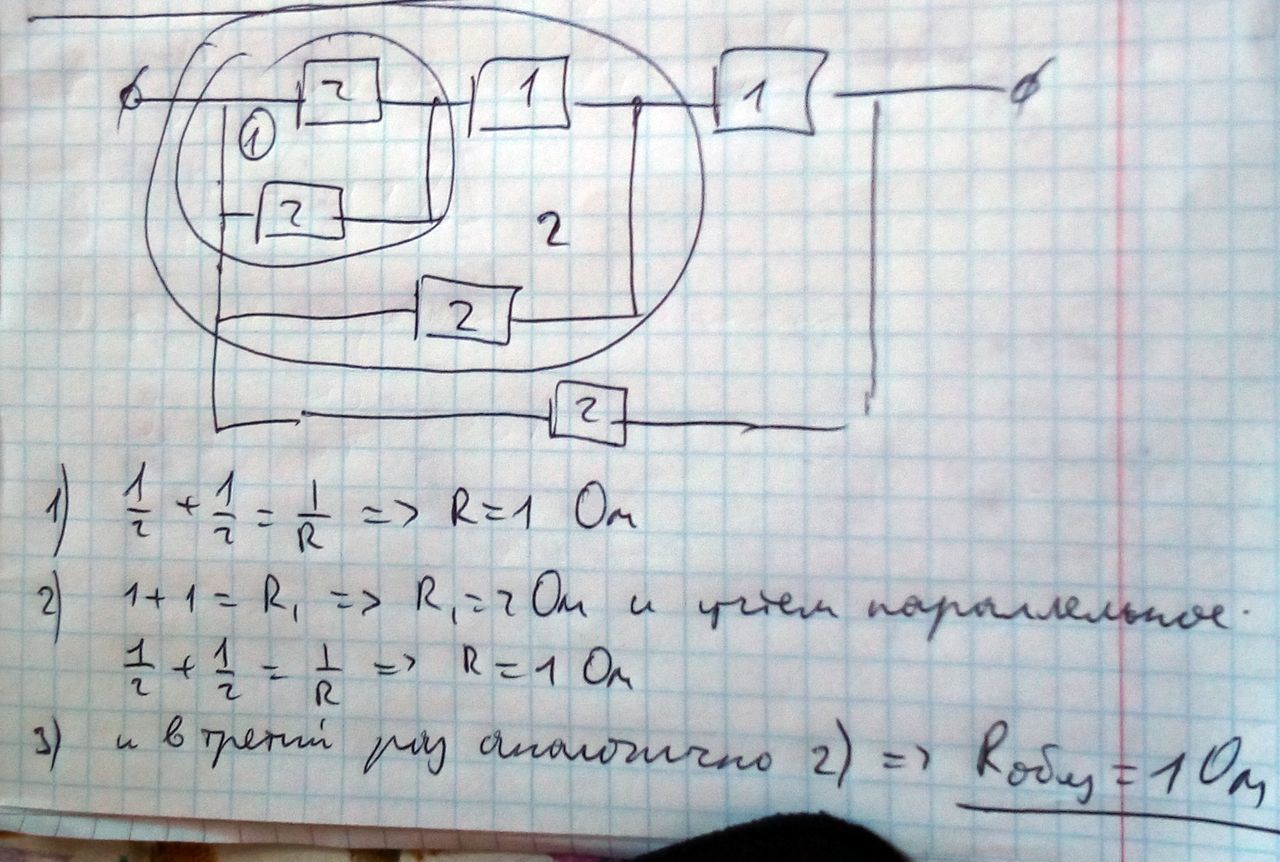 2 1 1
①
2
2
2
2
1) 1/2 + 1/2 = 1/R => R = 1 Ом
2) 1 + 1 = R₁ => R₁ = 2 Ом и учтем параллельное.
1/2 + 1/2 = 1/R => R = 1 Ом
3) и в третий раз аналогично 2) => Rобщ = 1 Ом